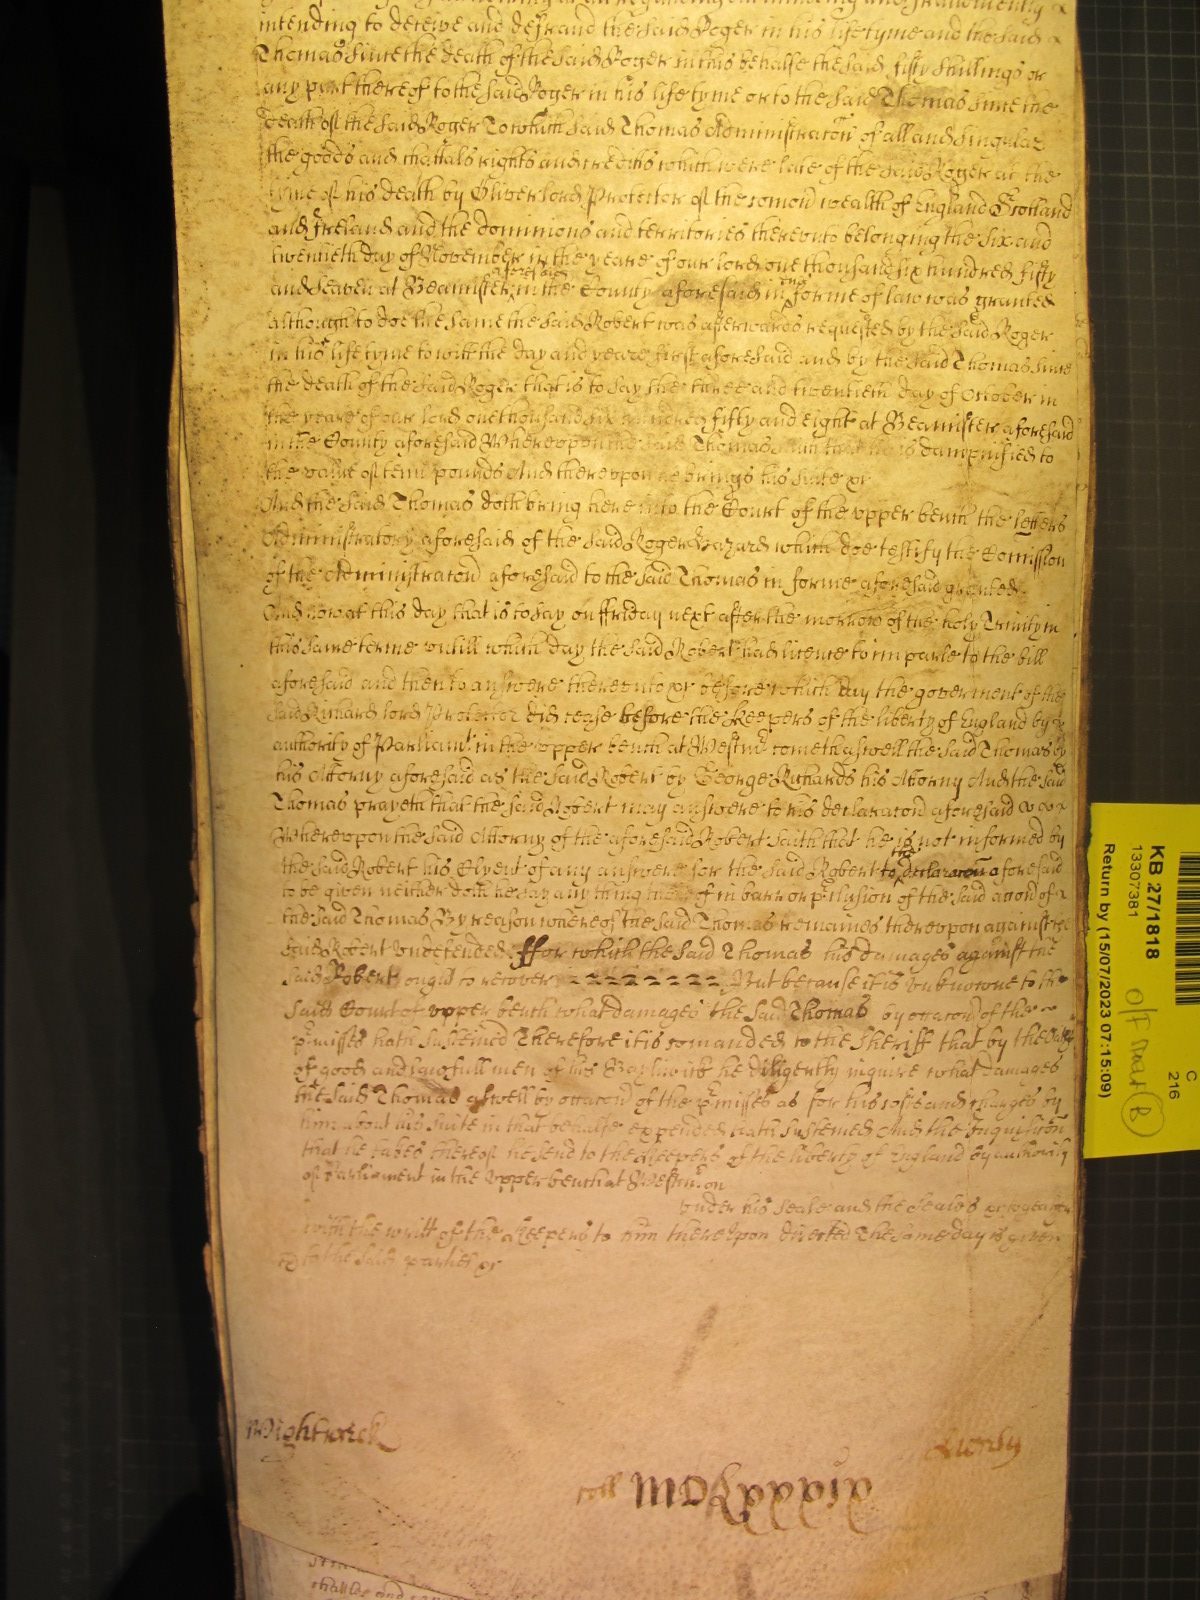 intending to deceive and defraud the said Roger in his life tyme and the said
Thomas since the death of the said Roger in this behalfe the said fifty shillings or
any part thereof to the said Roger in his life tyme or to the said Thomas since the
death of the said Roger To which said Thomas Administracon of all and singular
the goods and chattals rights and credditts which were late of the said Roger at the
tyme of his death by Oliver lord Protector of the comon wealth of England Scotland
and Ireland and the dominions and territories thereunto belonging the six and
twentieth day of November in the yeare of our lord one thousand six hundred fifty
and seaven at Beamister aforesaid in the County aforesaid in due forme of law was granted
Although to doe the same the said Robert was afterwards requested by the said Roger
in his life tyme to witt the day and yeare first aforesaid and by the said Thomas since
the death of the said Roger that is to say the three and twentieth day of October in
the yeare of our lord one thousand six hundred fifty and eight at Beamister aforesaid
in the County aforesaid Whereupon the said Thomas saith that he is dampnified to
the value of tenn pounds And thereupon he brings his suite &c
And the said Thomas doth bring here into the Court of the upper bench the letters
Administratory aforesaid of the said Roger Hazard which doe testify the Comission
of the Administracon aforesaid to the said Thomas in forme aforesaid granted.
And now at this day that is to say on ffriday next after the morrow of the holy Trinity in
this same terme untill which day the said Robert had licence to imparle to the bill
aforesaid and then to answere thereunto &c before which day the goverment of the
said Richard lord Protector did cease before the keepers of the liberty of England by
authority of Parliamt in the upper bench at Westmr cometh aswell the said Thomas by
his Attorny aforesaid as the said Robert by George Richards his Attorny And the said
Thomas prayeth that the said Robert may answere to his declaracon aforesaid
Whereupon the said Attorny of the aforesaid Robert saith that he is not informed by
the said Robert his Clyent of any answere for the said Robert to the declaracon aforesaid
to be given neither doth he say any thing thereof in barr or p'clusion of the said accon of
the said Thomas By reason whereof the said Thomas remaines thereupon against the
said Robert undefended ffor which the said Thomas his damages against the
said Robert ought to recover But because it is unknowne to the
said Court of upper bench what damages the said Thomas by occacon of the
p'misses hath susteined Therefore it is comanded to the Sheriff that by the oathes
of good and lawfull men of his Baylywick he diligently inquire what damages
the said Thomas aswell by occacon of the p'misses as for his costs and charges by
him about his suite in that behalfe expended hath susteined And the Inquisicon
that he takes thereof he send to the keepers of the liberty of England by authority
of Parliament in the upper bench at Westmr on
under his seale and the seales &c togeather
with the writt of the keepers to him thereupon directed The same day is given
to the said parties &c
Wightwick
roll
KB 27/1818
13307381
C
216
Return by (15/07/2023 07:15:09)
B